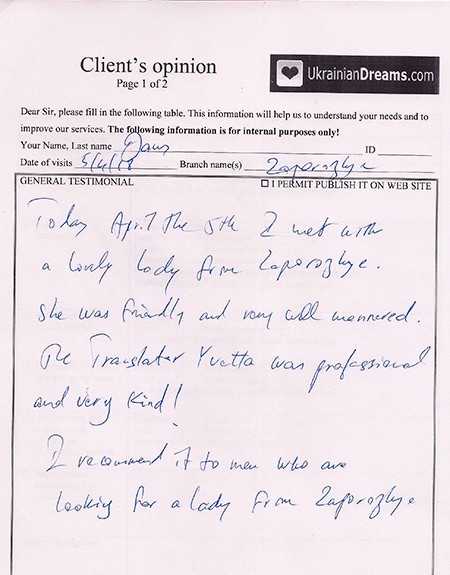 Client's opinion
Page 1 of 2
UkrainianDreams.com
Dear Sir, please fill in the following table. This information will help us to understand your needs and to
improve our services. The following information is for internal purposes only!
Your Name, Last name ID
Date of visits 5/4/18 Branch name(s) Zaporozhye
GENERAL TESTIMONIAL ☐ I PERMIT PUBLISH IT ON WEB SITE
Today April the 5th I met with
a lovely lady from Zaporozhye.
She was friendly and very well mannered.
The Translater Yvetta was professional
and very kind!
I recommend it to men who are
looking for a lady from Zaporozhye